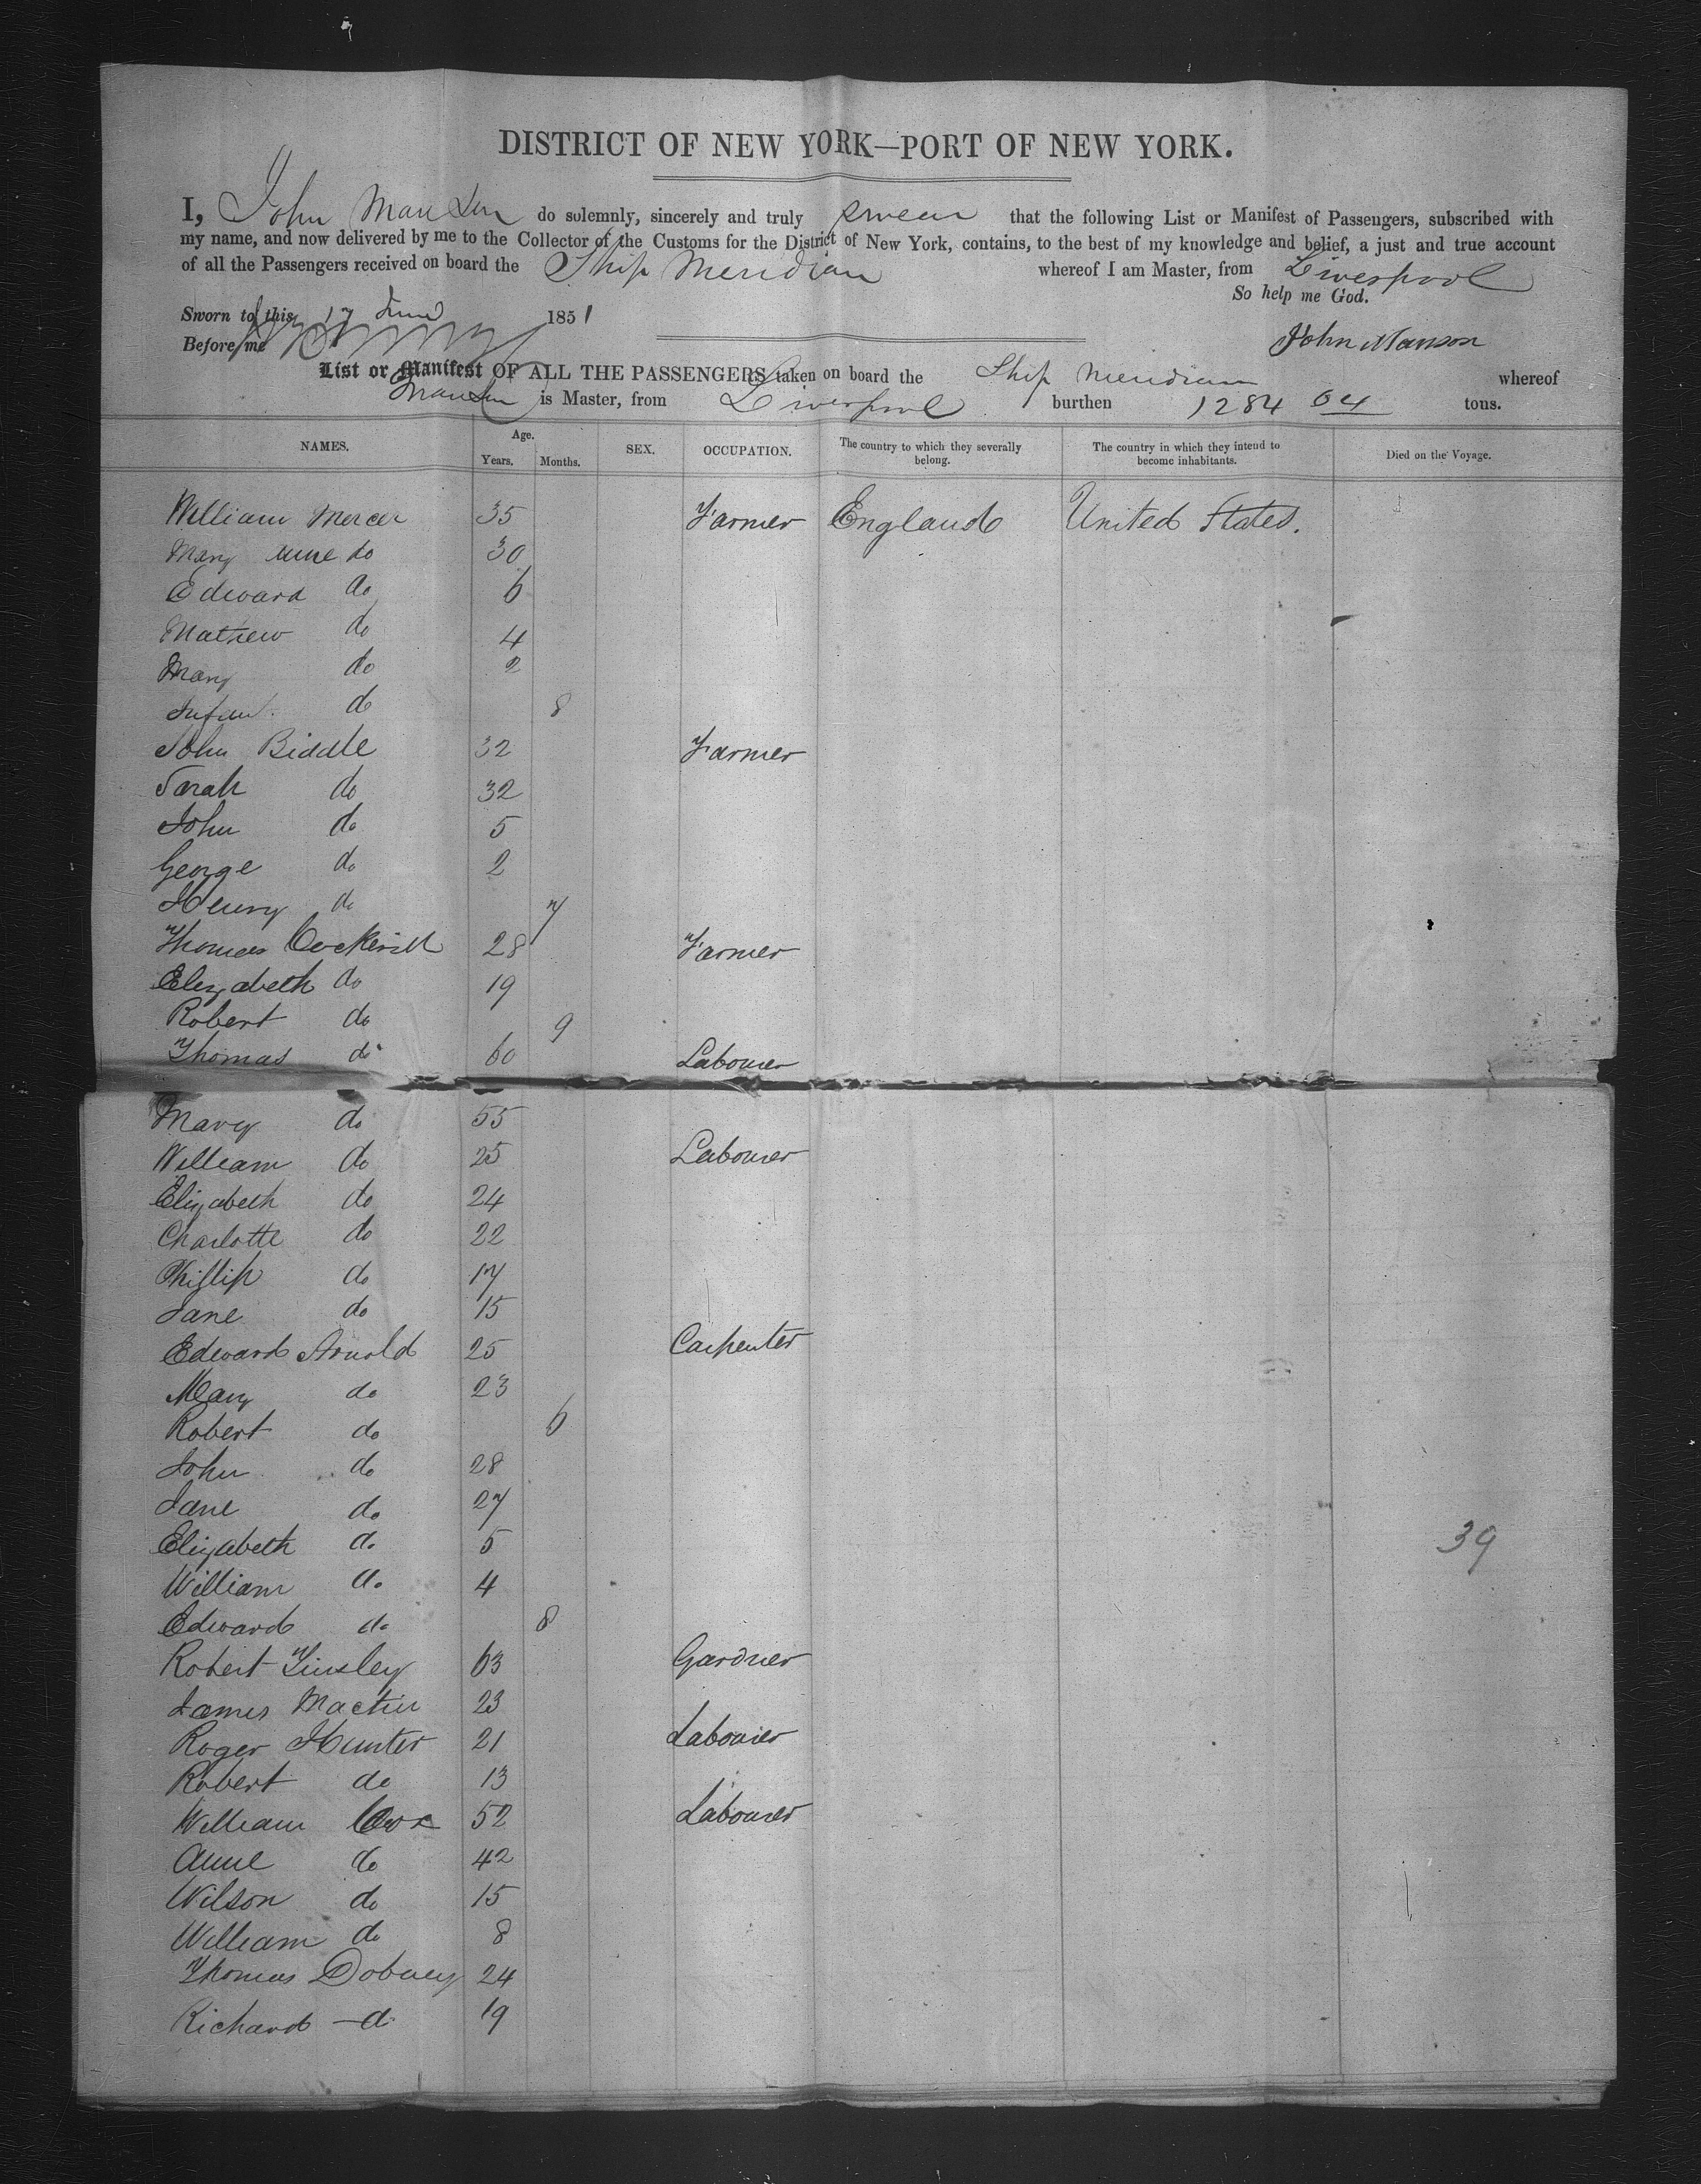 DISTRICT OF NEW YORK—PORT OF NEW YORK.
I, John Manson do solemnly, sincerely and truly swear that the following List or Manifest of Passengers, subscribed with
my name, and now delivered by me to the Collector of the Customs for the District of New York, contains, to the best of my knowledge and belief, a just and true account
of all the Passengers received on board the Ship Meridian whereof I am Master, from Liverpool
So help me God.
Sworn to this 17 June 1851
Before me
John Manson
List or Manifest OF ALL THE PASSENGERS taken on board the Ship Meridian whereof
Manson is Master, from Liverpool burthen 1284 04 tons.
NAMES. Age. Years. Months. SEX. OCCUPATION. The country to which they severally belong. The country in which they intend to become inhabitants. Died on the Voyage.
William Mercer 35 Farmer England United States.
Mary Anne do 30
Edward do 6
Mathew do 4
Mary do 2
Infant. do 8
John Biddle 32 Farmer
Sarah do 32
John do 5
George do 2
Henry do 7
Thomas Cockerill 28 Farmer
Elizabeth do 19
Robert do 9
Thomas do 60 Labourer
Mary do 55
William do 25 Labourer
Elizabeth do 24
Charlotte do 22
Phillip do 17
Jane do 15
Edward Arnold 25 Carpenter
Mary do 23
Robert do 6
John do 28
Jane do 27
Elizabeth do 5 39
William do 4
Edward do 8
Robert Tinsley 63 Gardner
James Mactier 23
Roger Hunter 21 Labourer
Robert do 13
William Cox 52 Labourer
Anne do 42
Wilson do 15
William do 8
Thomas Dobney 24
Richard do 19